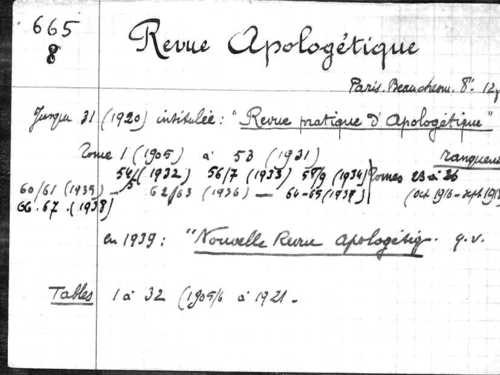 665
8
Revue Apologétique
Paris. Beauchesne. 8°. 12
Jusqu 31 (1920) intitulée: "Revue pratique d'Apologétique"
Tome 1 (1905) à 53 (1931) manquent
54/ (1932) 56/7 (1933) 58/9 (1934) Tomes 23 à 26
60/61 (1935) — 62/63 (1936) — 64-65 (1937) (Oct 1916 - sept 1918
66-67. (1938)
en 1939: "Nouvelle Revue Apologétiq. q.v.
Tables 1 à 32 (1905/6 à 1921-